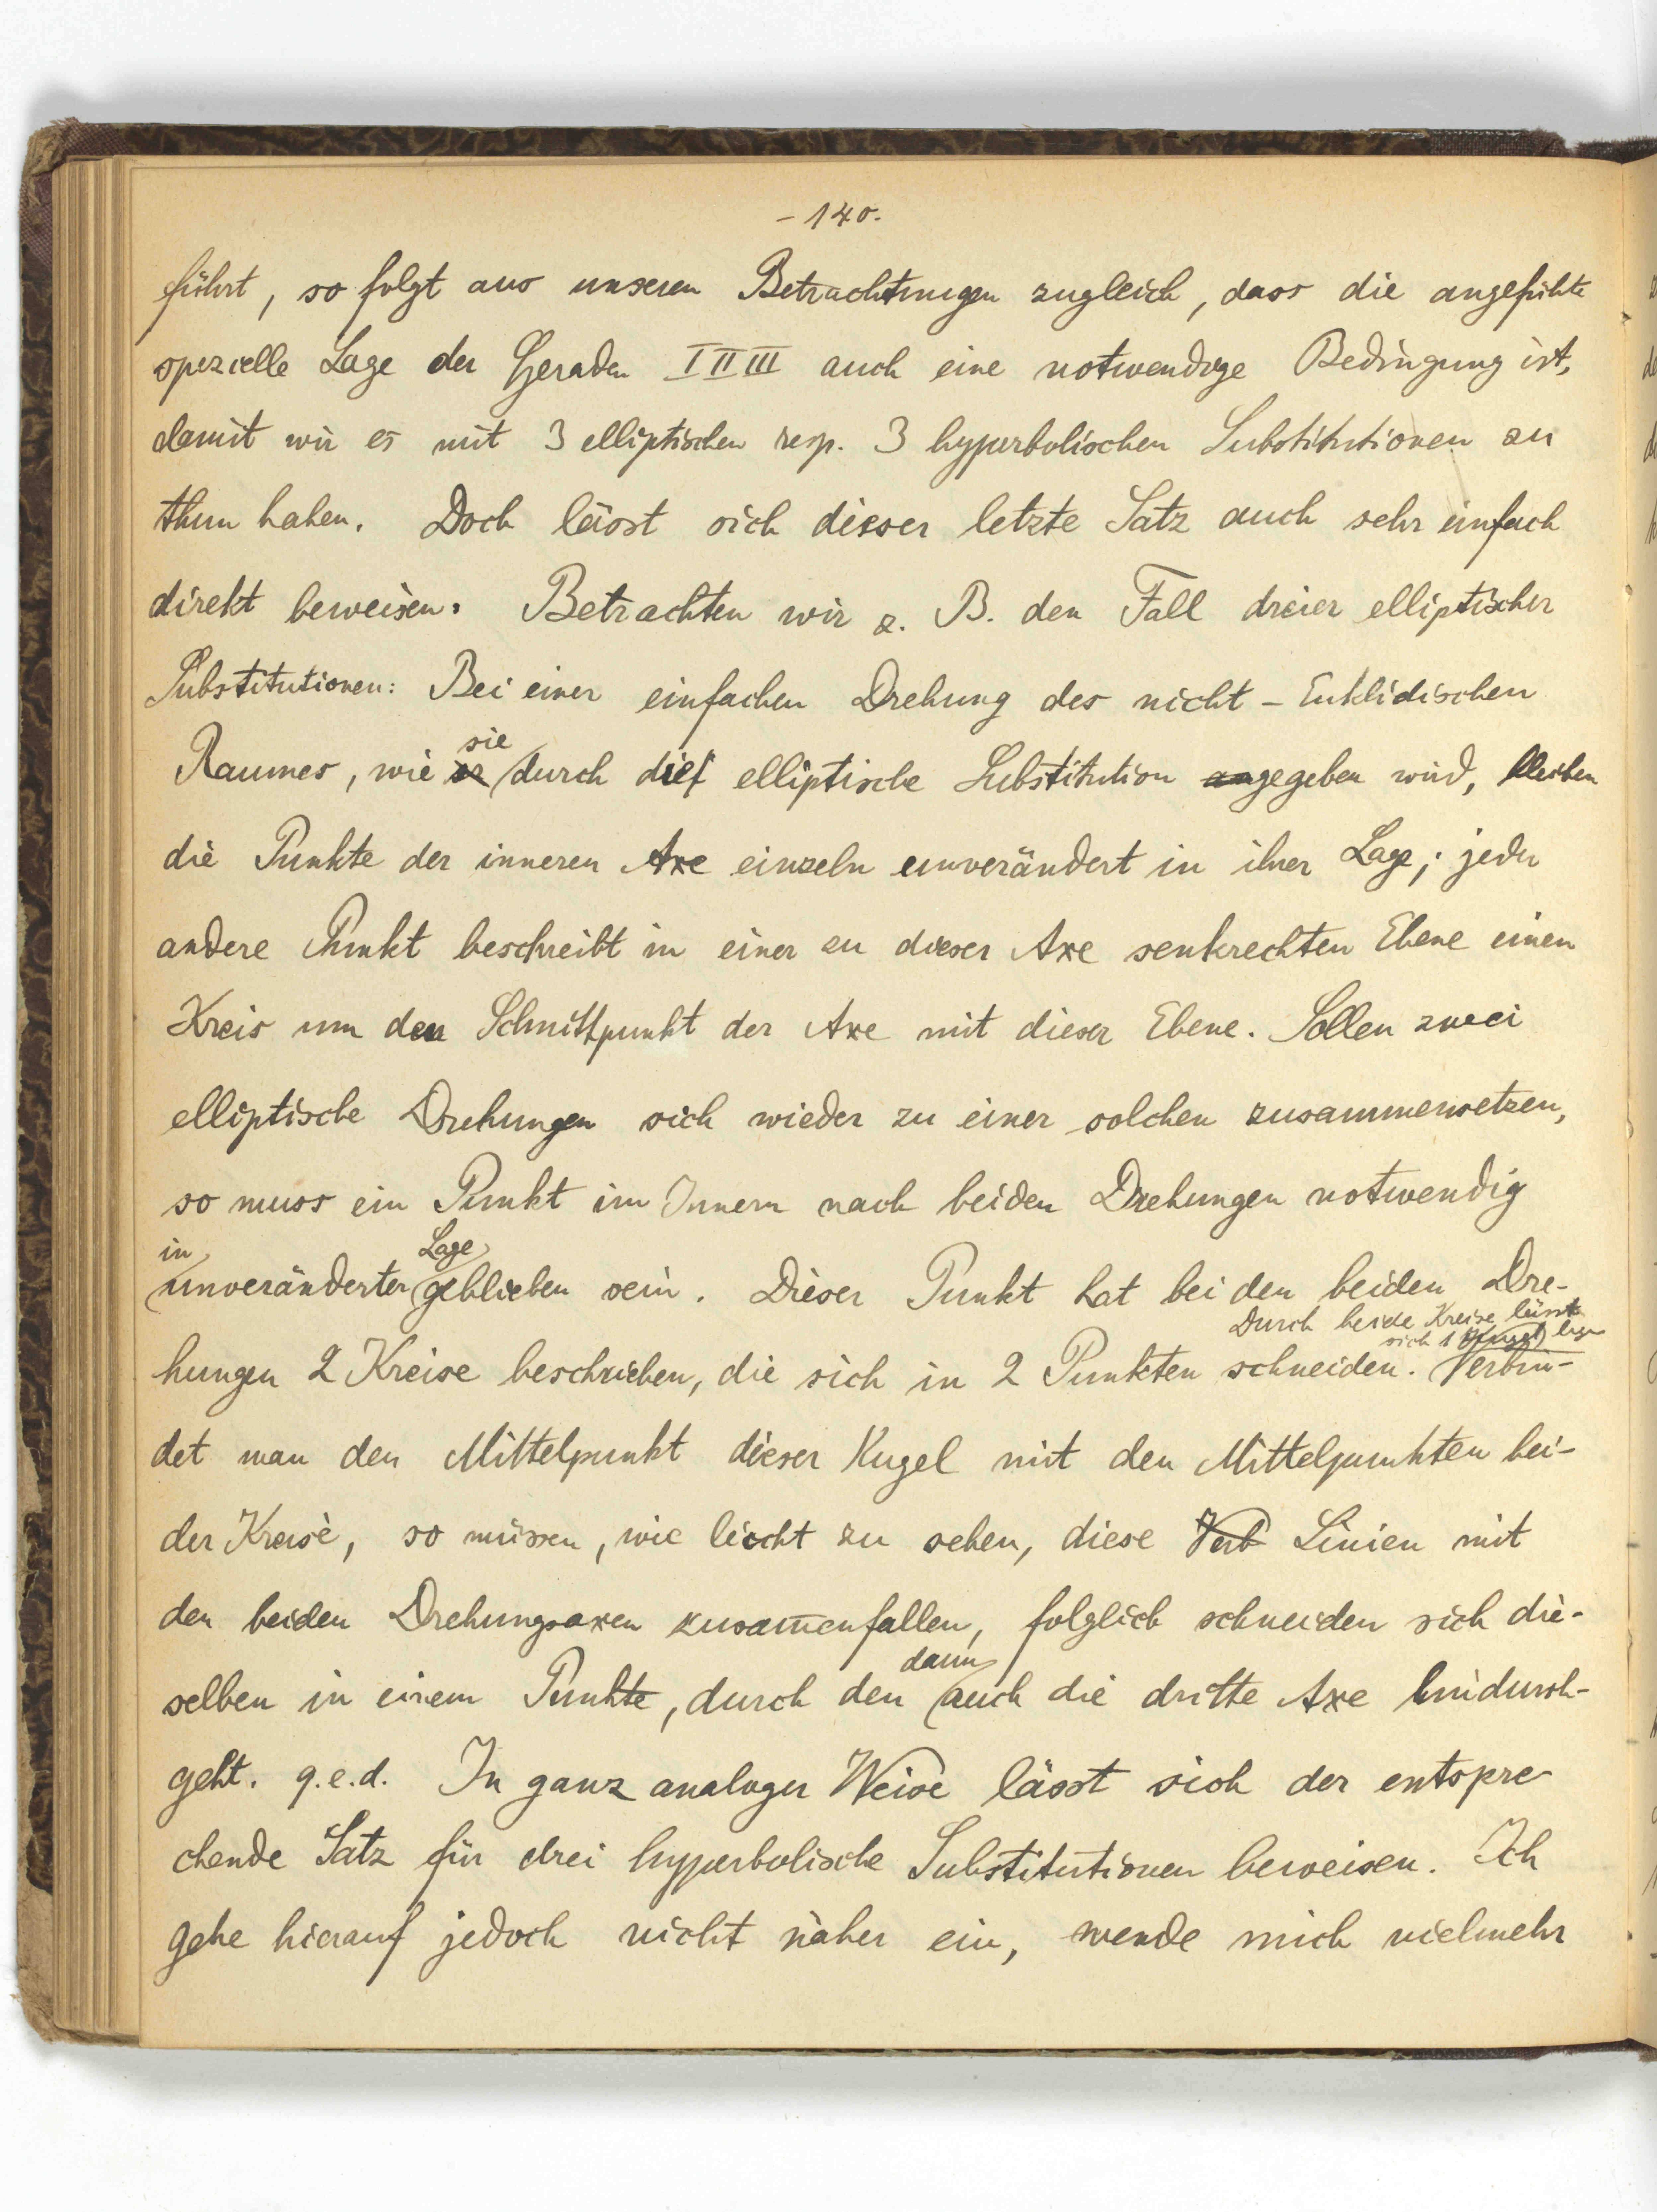 - 140.
führt, so folgt aus unseren Betrachtungen zugleich, dass die angeführte
spezielle Lage der Geraden I II III auch eine notwendige Bedingung ist,
damit wir es mit 3 elliptischen resp. 3 hyperbolischen Substitutionen zu
thun haben. Doch lässt sich dieser letzte Satz auch sehr einfach
direkt beweisen. Betrachten wir z. B. den Fall dreier elliptischer
Substitutionen: Bei einer einfachen Drehung des nicht - Euklidischen
sie
Raumes, wie durch die elliptische Substitution gegeben wird, bleiben
die Punkte der inneren Axe einzeln unverändert in ihrer Lage; jeder
andere Punkt beschreibt in einer zu dieser Axe senkrechten Ebene einen
Kreis um den Schnittpunkt der Axe mit dieser Ebene. Sollen zwei
elliptische Drehungen sich wieder zu einer solchen zusammensetzen,
so muss ein Punkt im Innern nach beiden Drehungen notwendig
in Lage
unveränderter geblieben sein. Dieser Punkt hat bei den beiden Dre-
Durch beide Kreise lässt
sich 1 Kugel legen
hungen 2 Kreise beschrieben, die sich in 2 Punkten schneiden. Verbin-
det man den Mittelpunkt dieser Kugel mit den Mittelpunkten bei-
der Kreise, so müssen, wie leicht zu sehen, diese Verb Linien mit
den beiden Drehungsaxen zusam̅enfallen, folglich schneiden sich die-
dann
selben in einem Punkte, durch den auch die dritte Axe hindurch-
geht. q.e.d. In ganz analoger Weise lässt sich der entspre-
chende Satz für drei hyperbolische Substitutionen beweisen. Ich
gehe hierauf jedoch nicht näher ein, wende mich vielmehr